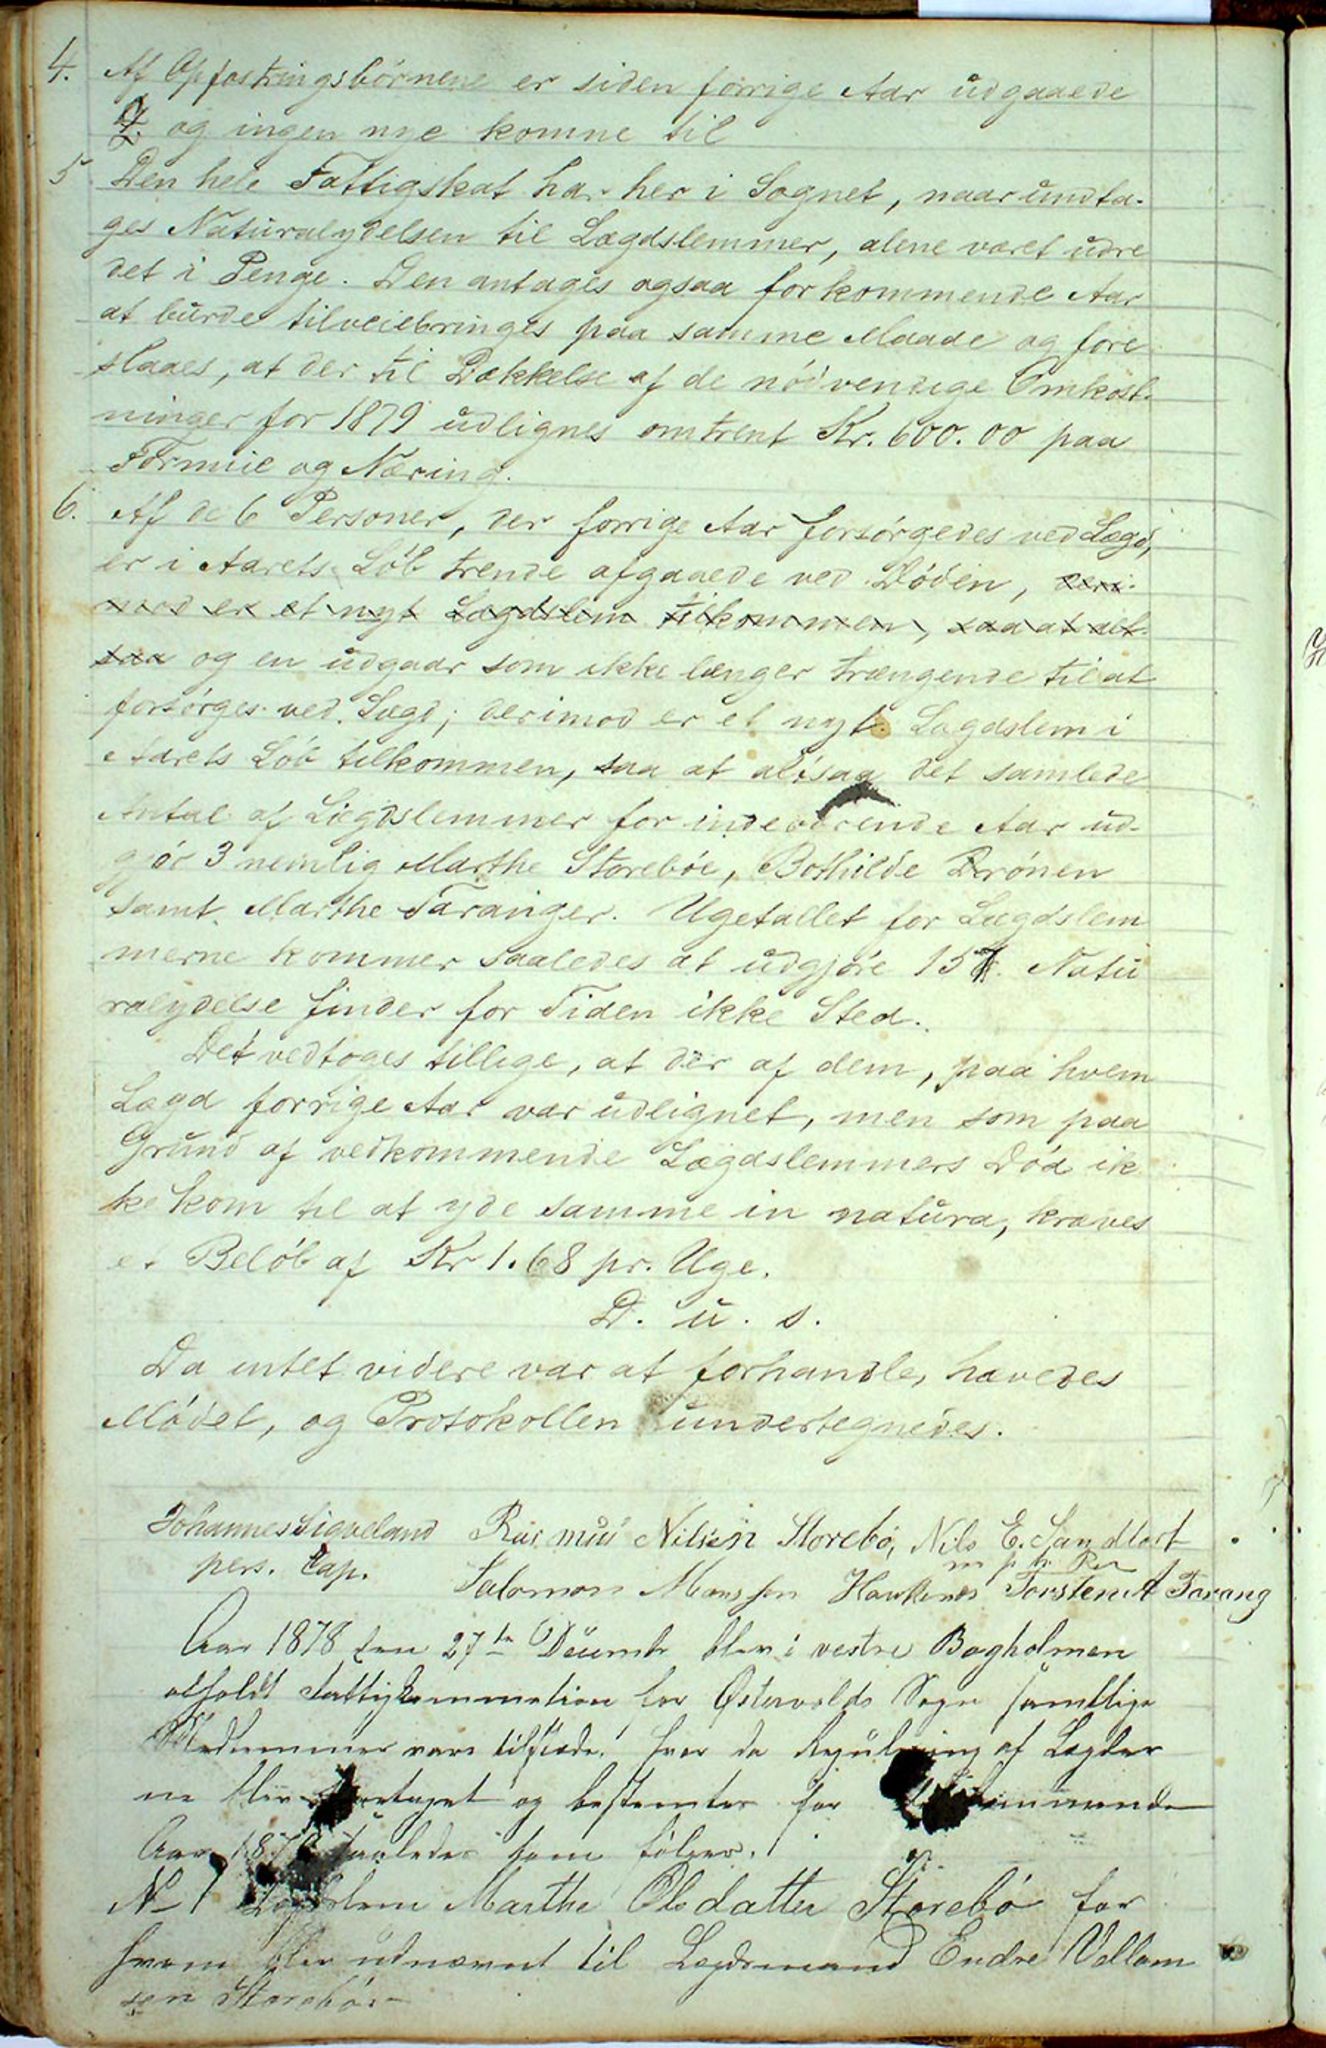 4. Af Opfostringsbörnene er siden forrige Aar udgaaede
2. og ingen nye komne til
5 Den hele Fattigskat har her i Sognet, naar undta-
ges Naturalydelsen til Lægdslemmer, alene været udre
det i Penge. Den antages ogsaa for kommende Aar
at burde tilveiebringes paa samme Maade og fore
slaaes, at der til Dækkelse af de nödvendige Omkost-
ninger for 1879 udlignes omtrent Kr. 600.00 paa
Formue og Næring.
6. Af de 6 Personer, der forrige Aar forsörgedes ved Lægd,
er i Aarets Löb trende afgaaede ved Döden, deri-
mod er et nyt Lægdslem tilkommen, saa at alt-
saa og en udgaar som ikke længer trængende til at
forsörges ved Lægd; derimod er et nyt Lægdslem i
Aarets Löb tilkommen, saa at altsaa det samlede
Antal af Lægdslemmer for indeværende Aar ud-
gjör 3 nemlig Marthe Storeböe, Bothilde Drönen
samt Marthe Taranger. Ugetallet for Lægdslem
merne kommer saaledes at udgjöre 157. Natu
ralydelse finder for Tiden ikke Sted.
Det vedtoges tillige, at der af dem, paa hvem
Lægd forrige Aar var udlignet, men som paa
Grund af vedkommende Lægdslemmers Död ik
ke kom til at yde samme in natura, kræves
et Belöb af Kr 1.68 pr. Uge.
D. u. s.
Da intet videre var at forhandle, hævedes
Mödet, og Protokollen undertegnedes.
Johannes Sigveland Rasmus Nilsen Storebö, Nils E. Sandtort
m p h Pen
pers. Cap. Salomon Monssen Haukenes Torsten A Tarang
Aar 1878 den 27de Decembr blev i vestre Bagholmen
afholdt Fattigkommission for Østervolds Sogn samtlige
Medlemmer vare tilstede. hvor da Regulering af Lægder
ne blev foretaget og bestemtes for tilkommende
Aar 1879 saaledes som fölger.
No 1 Lægdslem Marthe Olsdatter Storebö for
hvem blev udnævnt til Lægdsmand Endre Vellem
sen Storebö.-